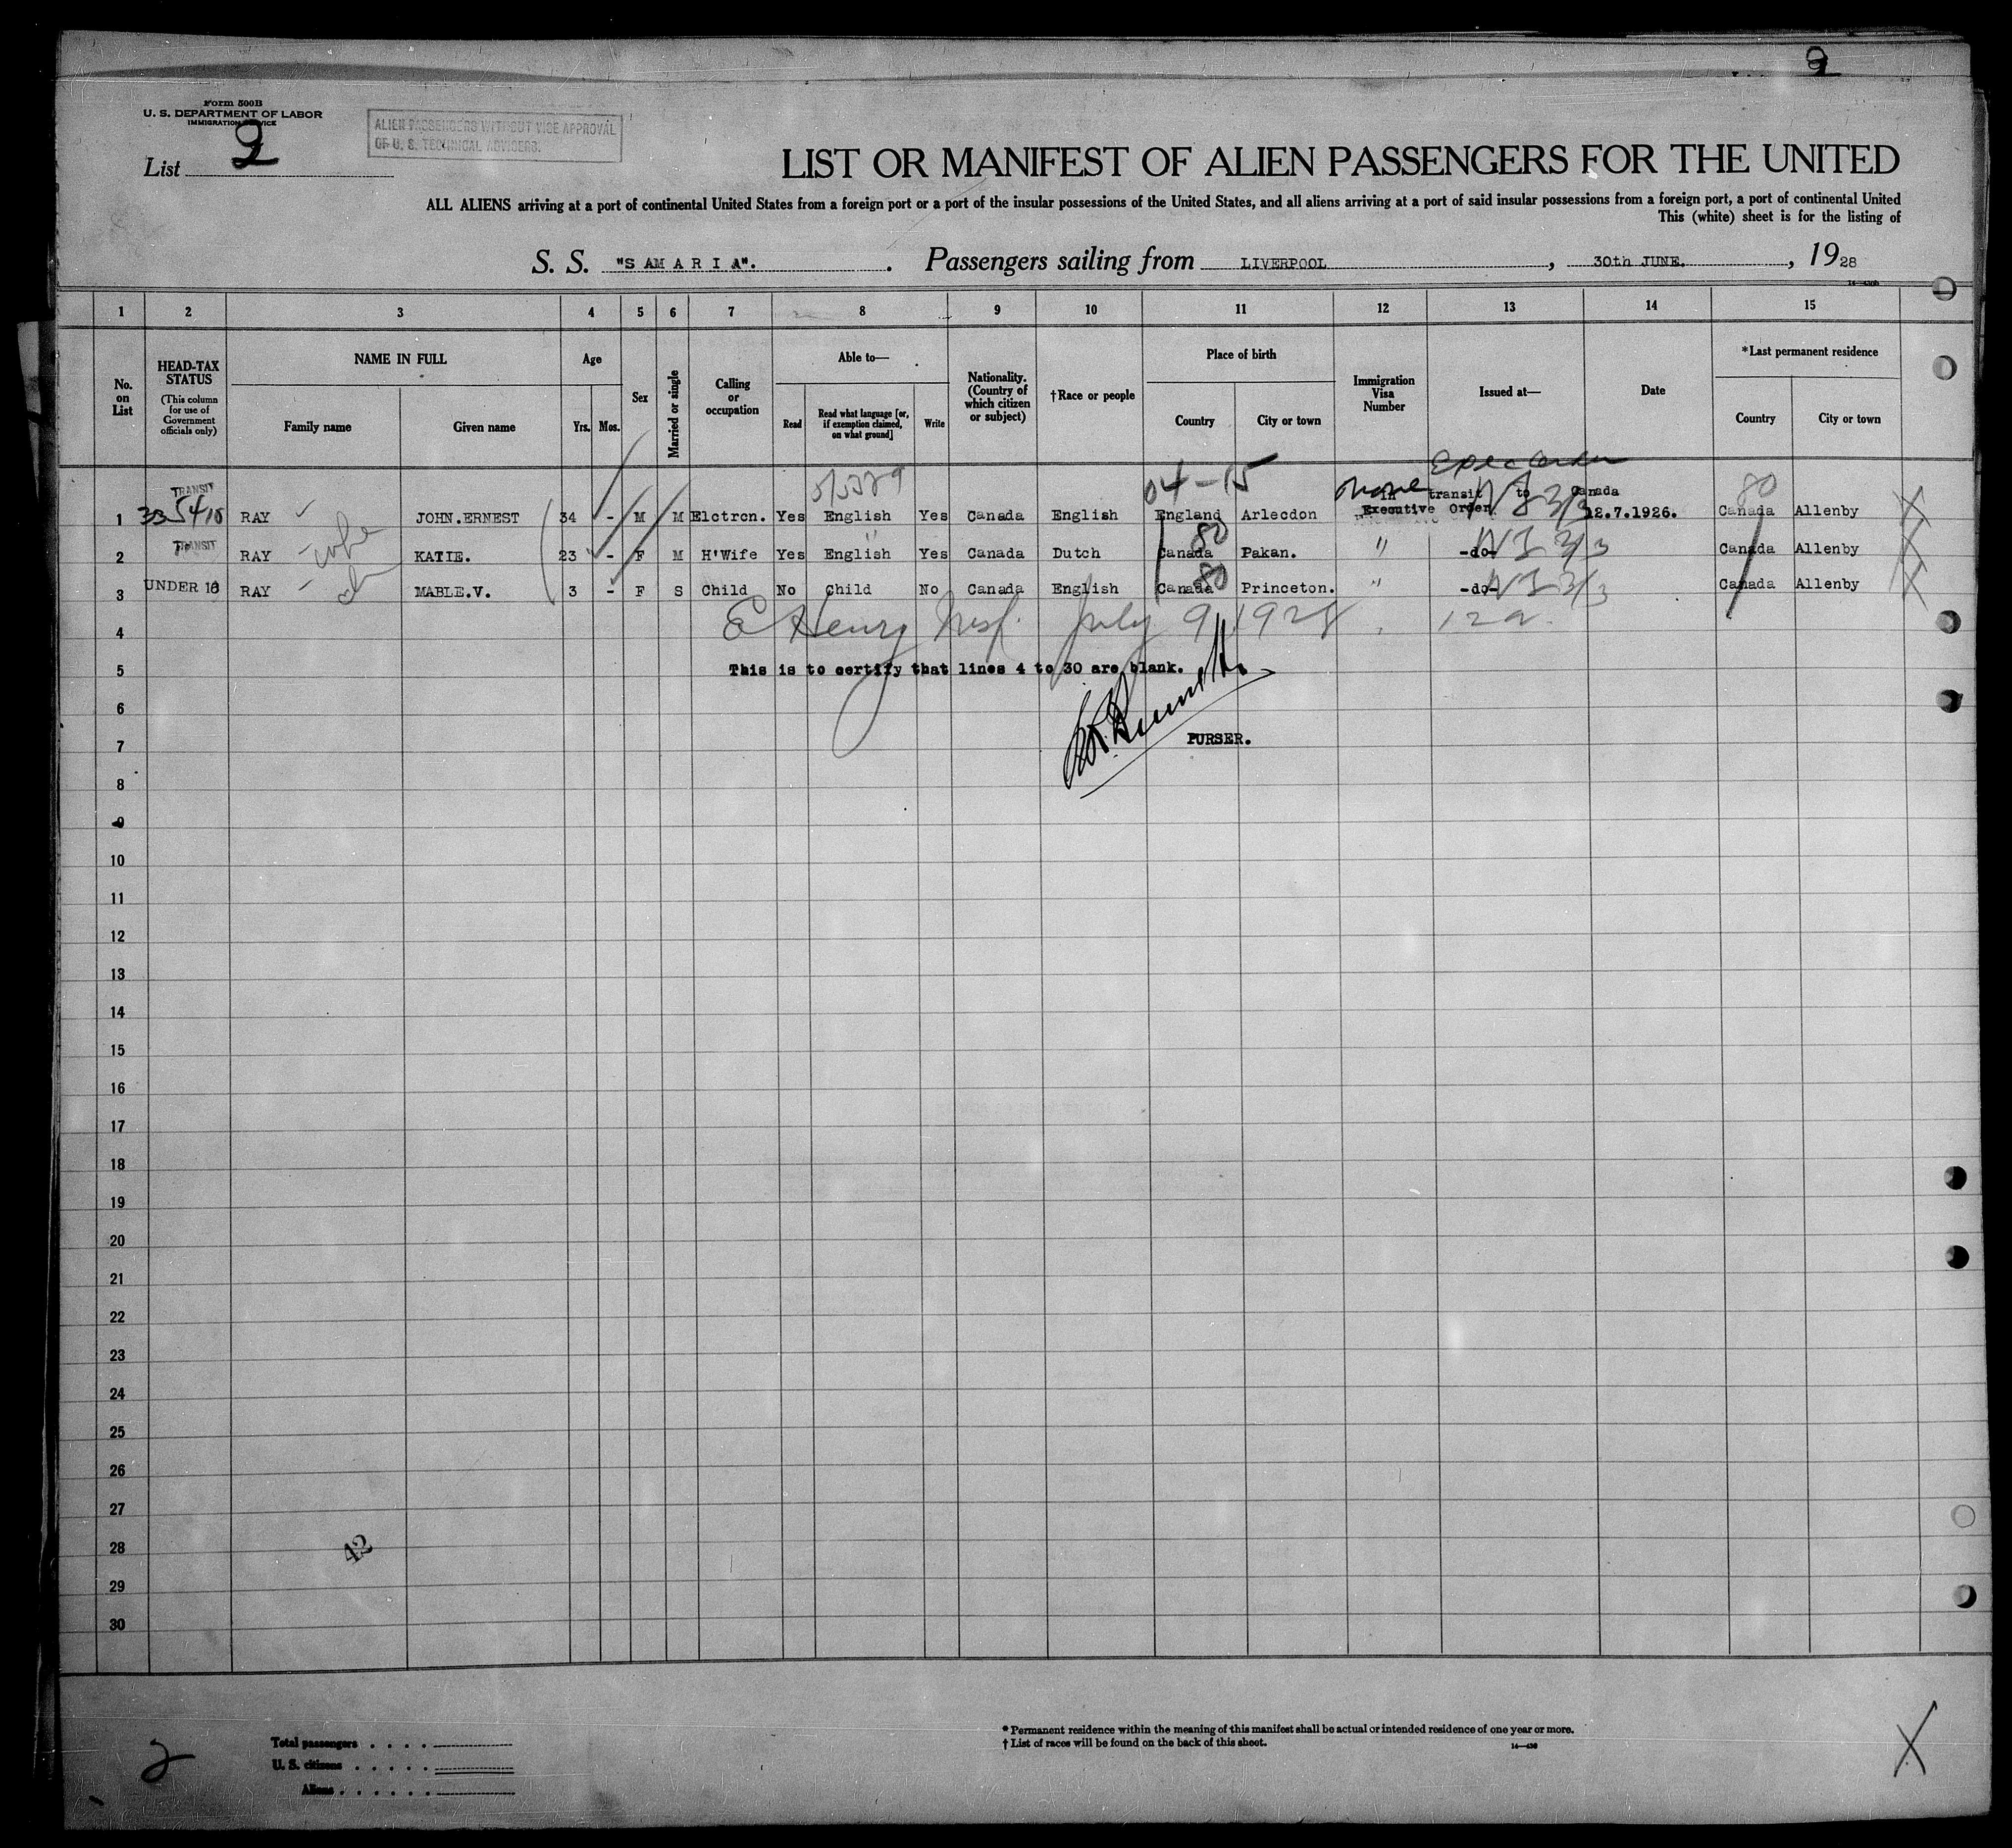 2
Form 500B
U. S. DEPARTMENT OF LABOR
IMMIGRATION SERVICE
ALIEN PASSENGERS WITHOUT VISE APPROVAL
OF U. S. TECHNICAL ADVISERS.
List 2
LIST OR MANIFEST OF ALIEN PASSENGERS FOR THE UNITED
ALL ALIENS arriving at a port of continental United States from a foreign port or a port of the insular possessions of the United States, and all aliens arriving at a port of said insular possessions from a foreign port, a port of continental United
This (white) sheet is for the listing of
S. S. "S A M A R I A". Passengers sailing from LIVERPOOL, 30th JUNE., 1928
1 2 3 4 5 6 7 8 9 10 11 12 13 14 15
No. on List
HEAD-TAX STATUS (This column for use of Government officials only)
NAME IN FULL
Family name Given name
Age
Yrs. Mos.
Sex
Married or single
Calling or occupation
Able to—
Read Read what language [or, if exemption claimed, on what ground] Write
Nationality. (Country of which citizen or subject)
†Race or people
Place of birth
Country City or town
Immigration Visa Number
Issued at—
Date
*Last permanent residence
Country City or town
04-15 80
TRANSIT None In transit to Canada
1 RAY JOHN.ERNEST 34 - M M Elctrcn. Yes English Yes Canada English England Arlecdon Executive Order 12.7.1926. Canada Allenby
TRANSIT 80
2 RAY wife KATIE. 23 - F M H'Wife Yes English Yes Canada Dutch Canada Pakan. " -do- Canada Allenby
80
3 UNDER 16 RAY ch MABLE.V. 3 - F S Child No Child No Canada English Canada Princeton. " -do- Canada Allenby
4 E Henry Insp. July 9 1928
5 This is to certify that lines 4 to 30 are blank.
6
7 PURSER.
8
9
10
11
12
13
14
15
16
17
18
19
20
21
22
23
24
25
26
27
28 42
29
30
* Permanent residence within the meaning of this manifest shall be actual or intended residence of one year or more.
† List of races will be found on the back of this sheet.
Total passengers
U. S. citizens
Aliens
2
X